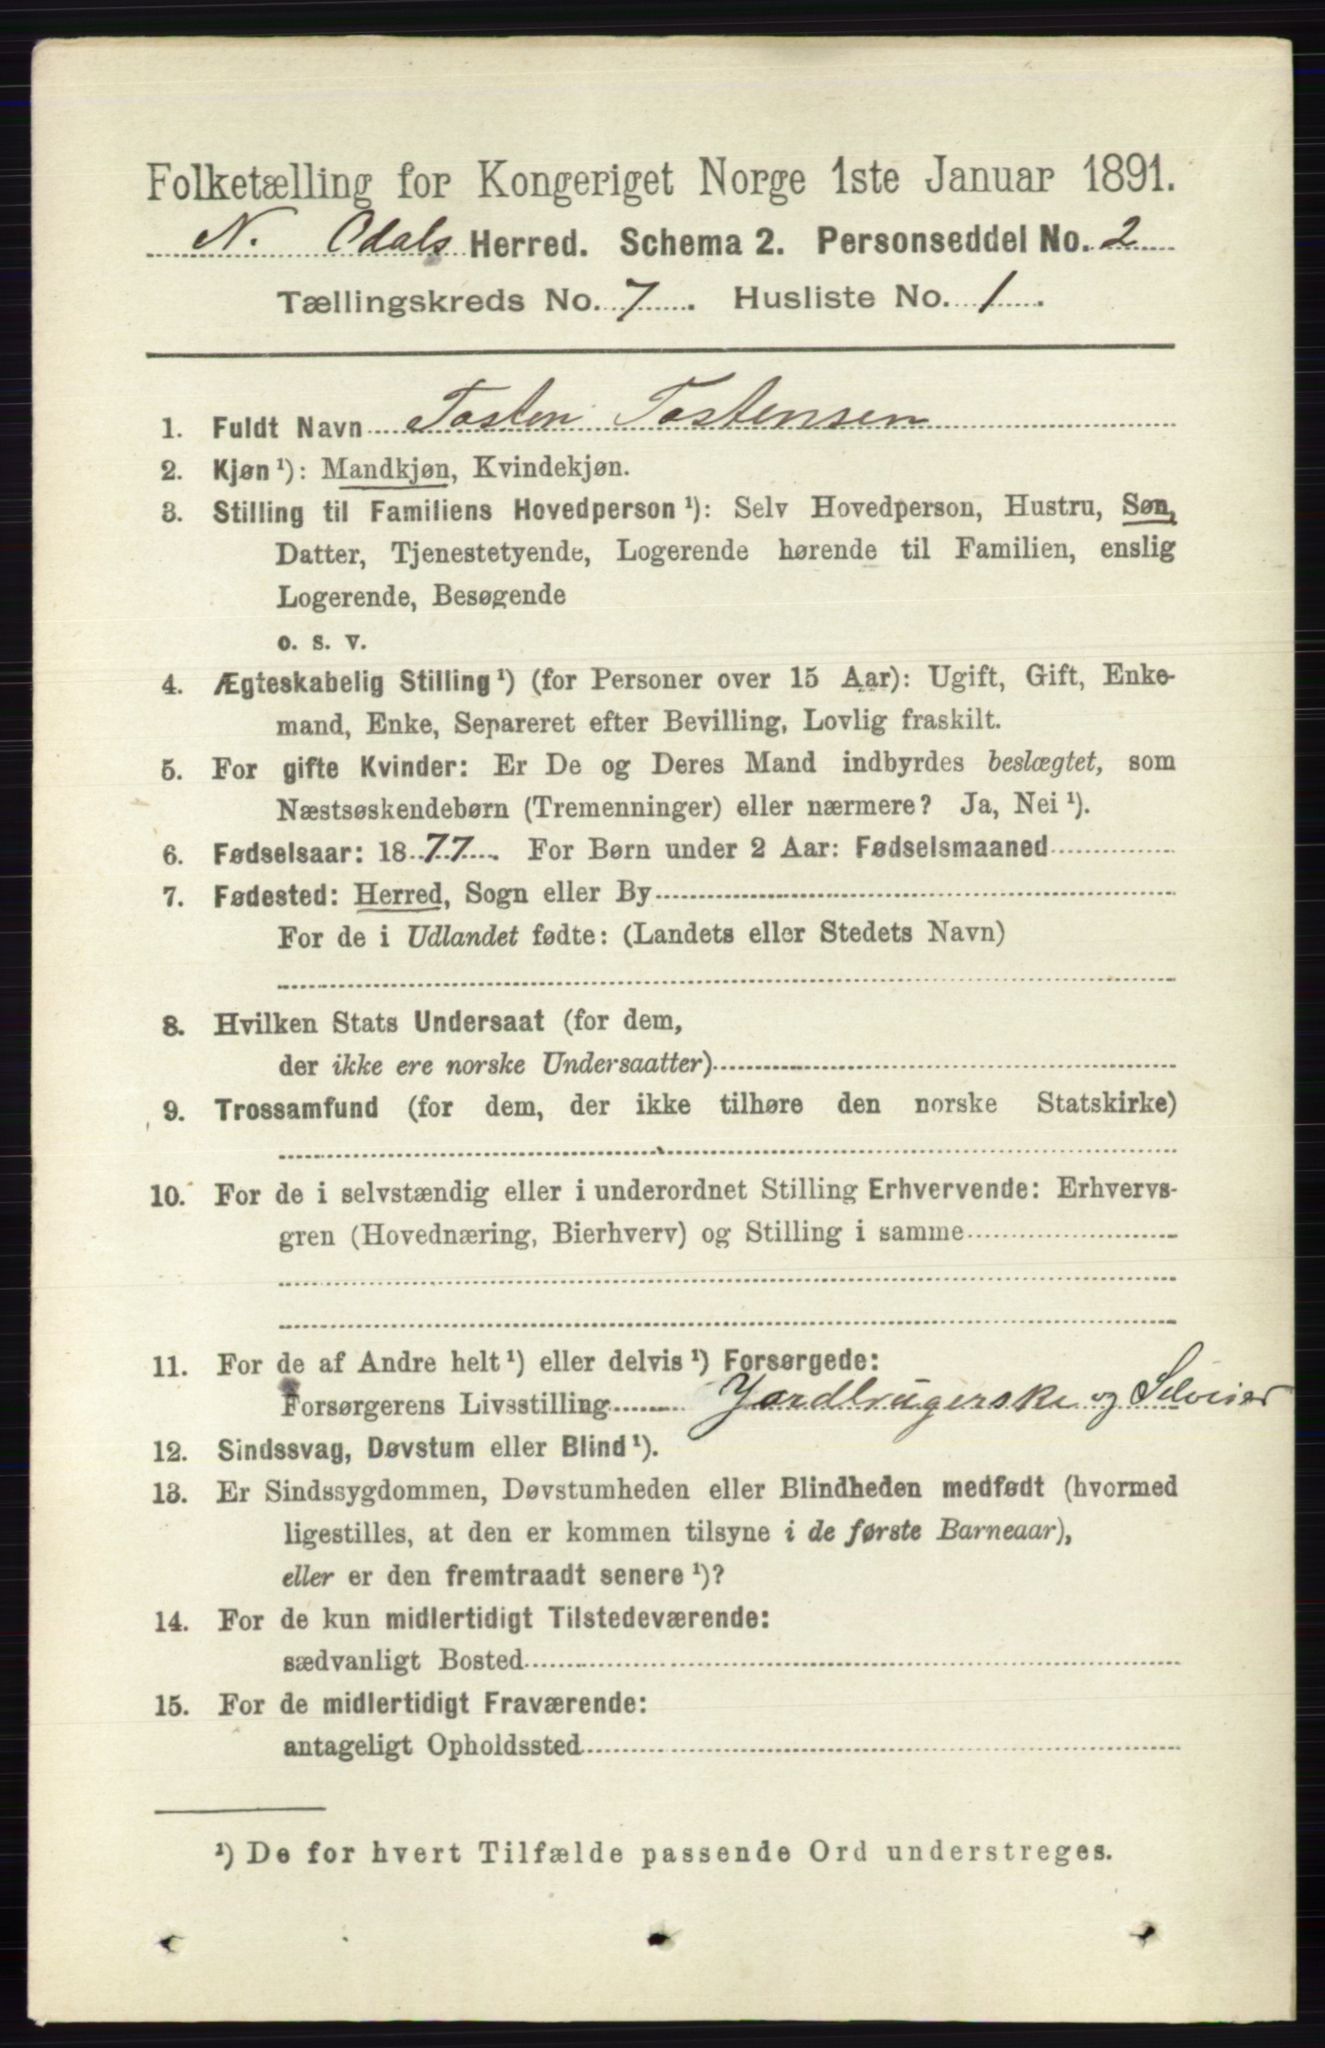 Folketælling for Kongeriget Norge 1ste Januar 1891.
N. Odals Herred. Schema 2. Personseddel No. 2
Tællingskreds No. 7. Husliste No. 1.
1. Fuldt Navn Tosten Tostensen
2. Kjøn ¹): Mandkjøn, Kvindekjøn.
3. Stilling til Familiens Hovedperson ¹): Selv Hovedperson, Hustru, Søn,
Datter, Tjenestetyende, Logerende hørende til Familien, enslig
Logerende, Besøgende
o. s. v.
4. Ægteskabelig Stilling ¹) (for Personer over 15 Aar): Ugift, Gift, Enke-
mand, Enke, Separeret efter Bevilling, Lovlig fraskilt.
5. For gifte Kvinder: Er De og Deres Mand indbyrdes beslægtet, som
Næstsøskendebørn (Tremenninger) eller nærmere? Ja, Nei ¹).
6. Fødselsaar: 1877. For Børn under 2 Aar: Fødselsmaaned
7. Fødested: Herred, Sogn eller By
For de i Udlandet fødte: (Landets eller Stedets Navn)
8. Hvilken Stats Undersaat (for dem,
der ikke ere norske Undersaatter)
9. Trossamfund (for dem, der ikke tilhøre den norske Statskirke)
10. For de i selvstændig eller i underordnet Stilling Erhvervende: Erhvervs-
gren (Hovednæring, Bierhverv) og Stilling i samme
11. For de af Andre helt ¹) eller delvis ¹) Forsørgede:
Forsørgerens Livsstilling Jordbrugerske og Selveier
12. Sindssvag, Døvstum eller Blind ¹).
13. Er Sindssygdommen, Døvstumheden eller Blindheden medfødt (hvormed
ligestilles, at den er kommen tilsyne i de første Barneaar),
eller er den fremtraadt senere ¹)?
14. For de kun midlertidigt Tilstedeværende:
sædvanligt Bosted
15. For de midlertidigt Fraværende:
antageligt Opholdssted
¹) De for hvert Tilfælde passende Ord understreges.